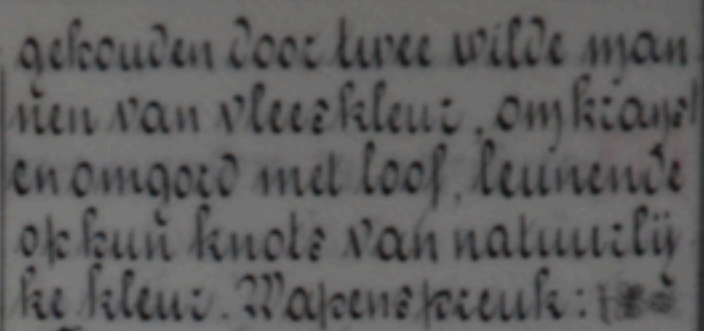 gehouden door twee wilde man
nen van vleeskleur, omkranst
en omgord met loof, leunende
op hun knots van natuurlij
ke kleur. Wapenspreuk: